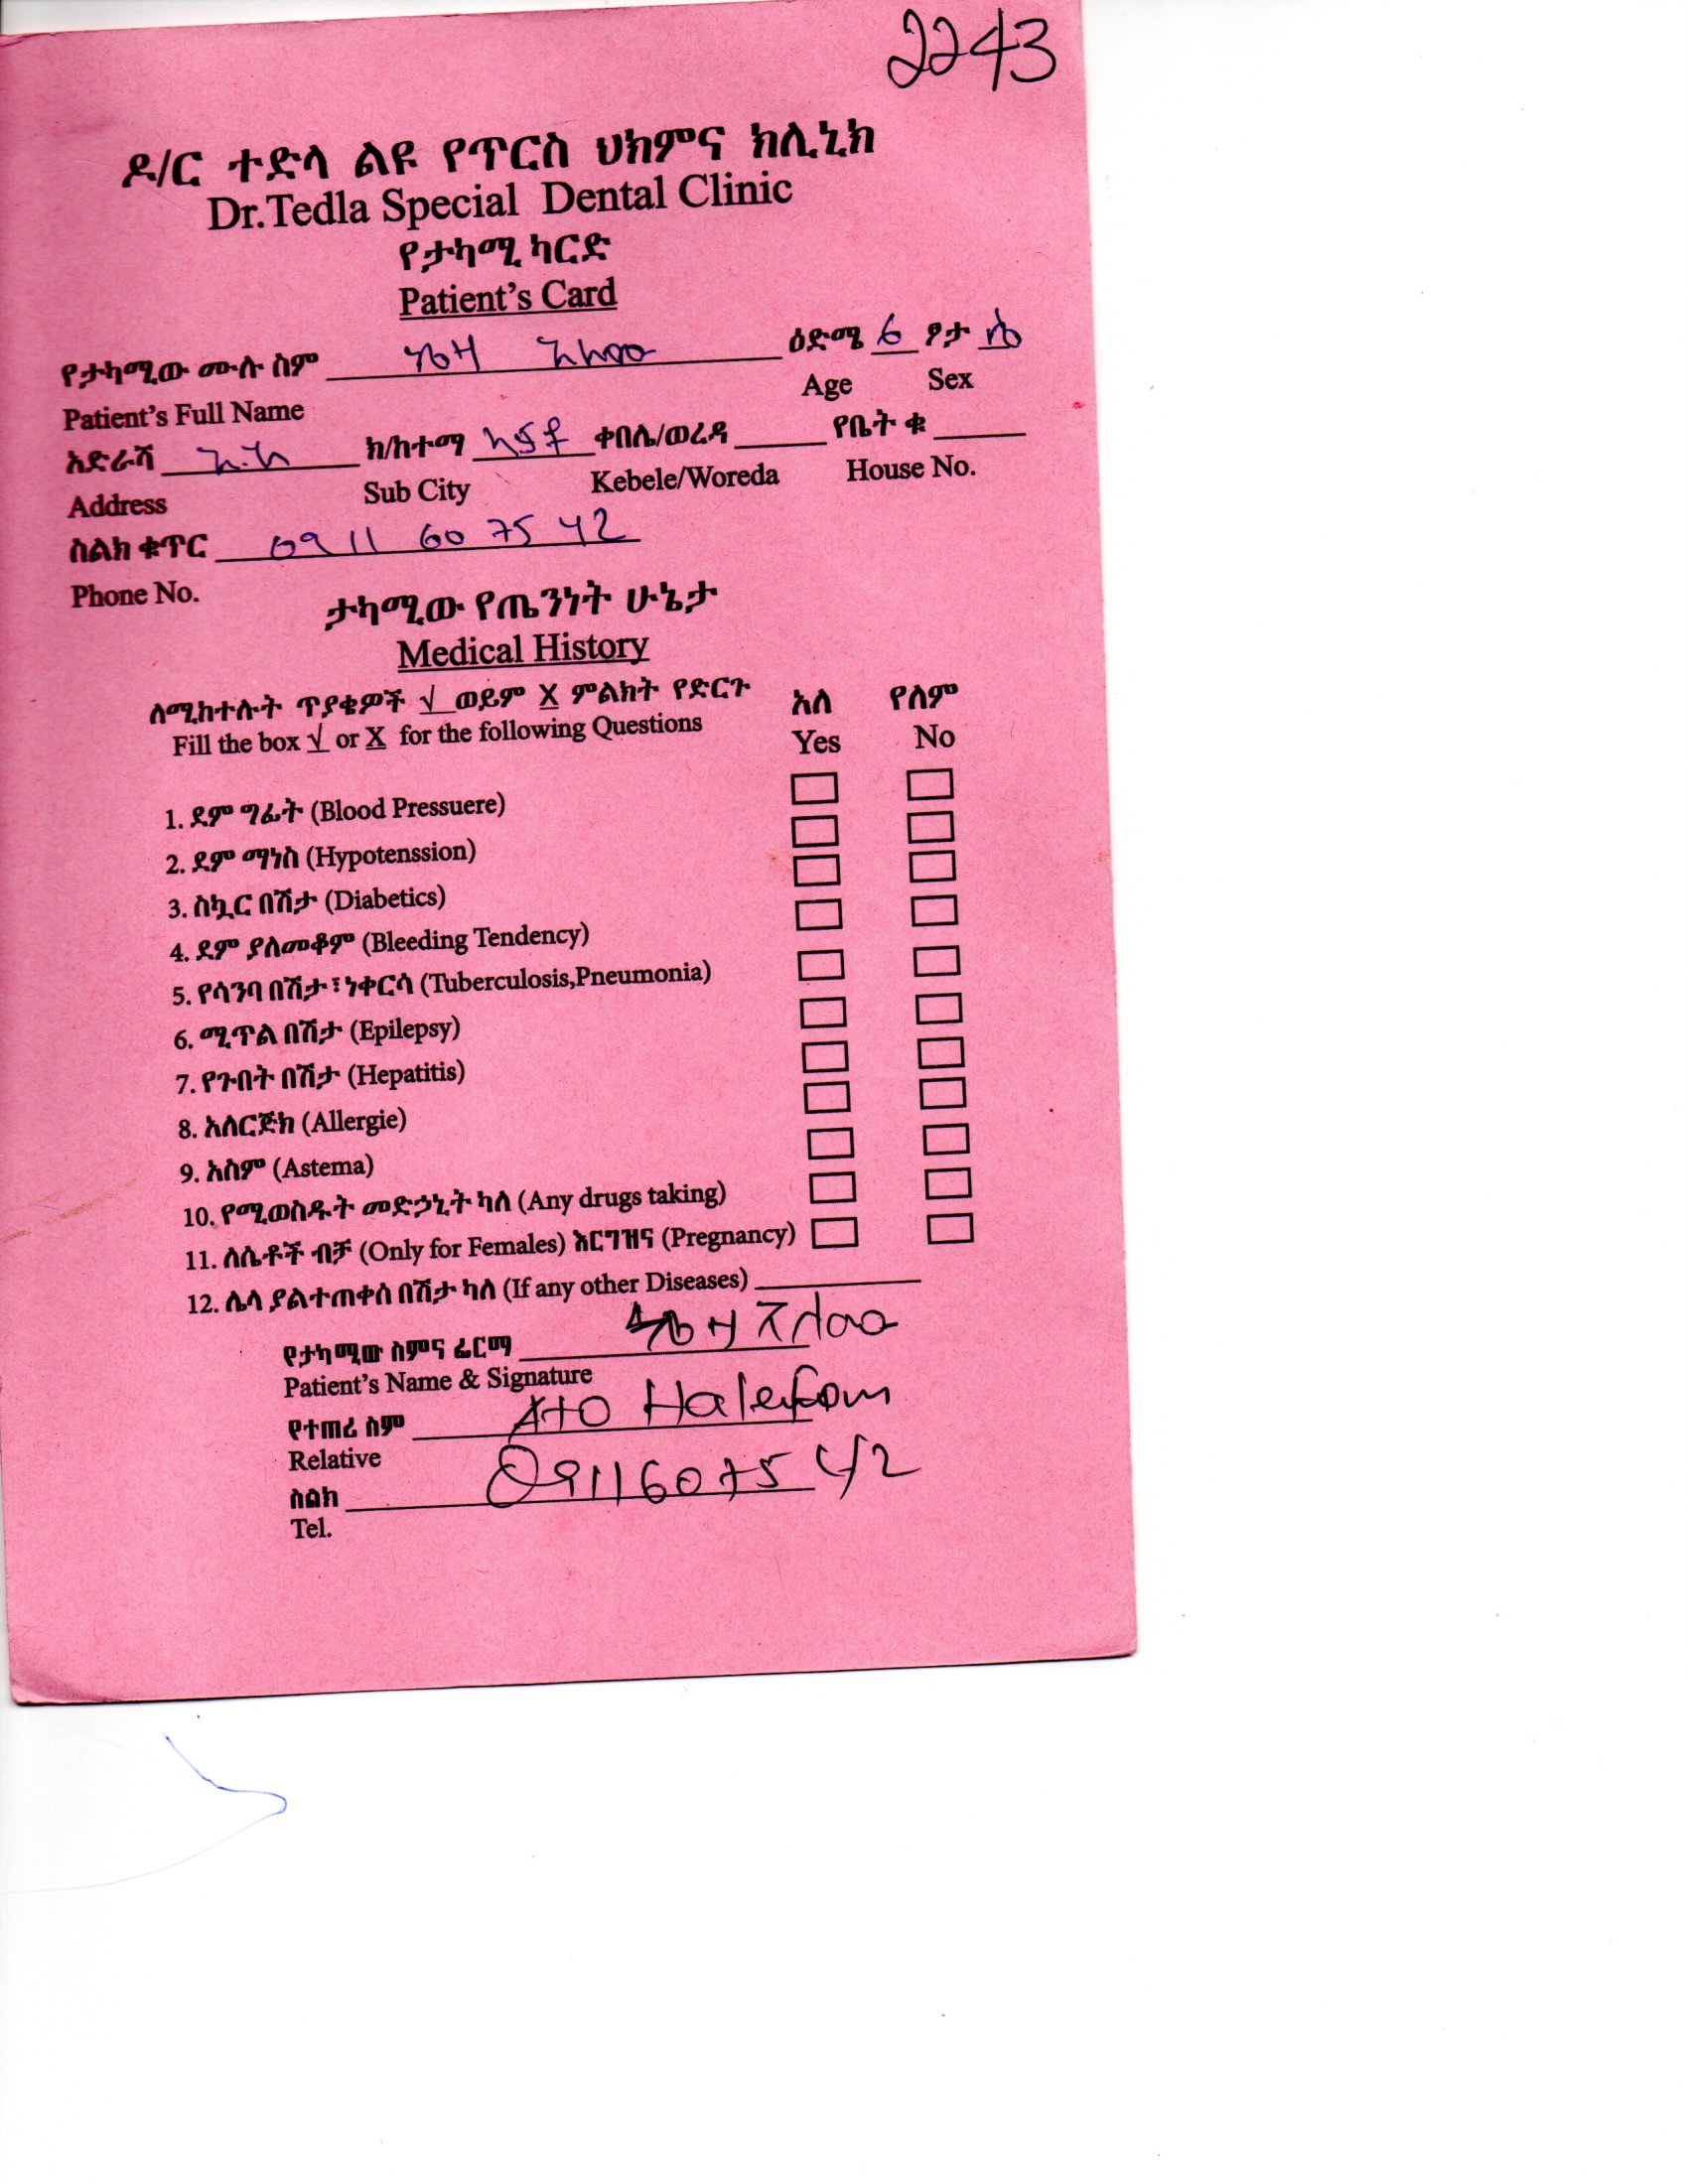 2243
ዶ/ር ተድላ ልዩ የጥርስ ህክምና ክሊኒክ
Dr.Tedla Special Dental Clinic
የታካሚ ካርድ
Patient's Card
የታካሚው ሙሉ ስም ዕድሜ 6 ፆታ ሴ
Patient's Full Name Age Sex
አድራሻ አ.አ ክ/ከተማ ቀበሌ/ወረዳ የቤት ቁ
Address Sub City Kebele/Woreda House No.
ስልክ ቁጥር 0911 60 75 42
Phone No.
ታካሚው የጤንነት ሁኔታ
Medical History
ለሚከተሉት ጥያቄዎች √ ወይም X ምልክት የድርጉ አለ የለም
Fill the box √ or X for the following Questions Yes No
1. ደም ግፊት (Blood Pressuere)
2. ደም ማነስ (Hypotenssion)
3. ስኳር በሽታ (Diabetics)
4. ደም ያለመቆም (Bleeding Tendency)
5. የሳንባ በሽታ፣ ነቀርሳ (Tuberculosis,Pneumonia)
6. ሚጥል በሽታ (Epilepsy)
7. የጉበት በሽታ (Hepatitis)
8. አለርጅክ (Allergie)
9. አስም (Astema)
10. የሚወስዱት መድኃኒት ካለ (Any drugs taking)
11. ለሴቶች ብቻ (Only for Females) እርግዝና (Pregnancy)
12. ሌላ ያልተጠቀሰ በሽታ ካለ (If any other Diseases)
የታካሚው ስምና ፊርማ
Patient's Name & Signature
የተጠሪ ስም Ato Halefom
Relative
ስልክ 0911607542
Tel.